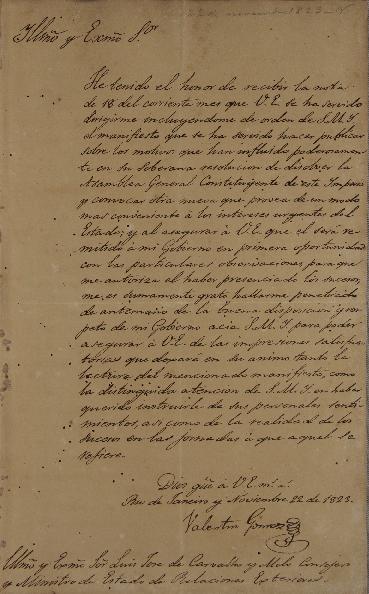 22 de novembro 1823
Illmõ y Exmõ Sor
He tenido el honor de recibir la nota
de 18 del corriente mes que V.E. se ha servido
dirigirme incluyendome de orden de S.M.Y.
el manifiesto que se ha servido hacer publicar
sobre los motivos que han influido poderosamen-
te en su Soberana resolucion de disolver la
Asamblea General Constituyente de este Imperio
y convocar otra nueva que provea de un modo
mas conveniente à los intereses urgentes del
Estado; y al asegurar à V.E. que el será re-
mitido à mi Gobierno en primera oportunidad
con las particulares observaciones para que
me autoriza el haber presenciado los sucesos,
me es sumamente grato hallarme penetrado
de antemano de la buena disposicion y sim-
patia de mi Gobierno acia S.M.Y. para poder
asegurar à V.E. de las impresiones satisfac-
torias que dexará en su animo tanto la
lectura del mencionado manifiesto, como
la distinguida atencion de S.M.Y. en haber
querido instruirle de sus personales senti-
mientos, asi como de la realidad de los
sucesos en las jornadas à que aquel se
refiere.
Dios güe à V.E. m.s a.s
Rio de Janeiro y Noviembre 22 de 1823.
Valentin Gomez
Illmõ y Exmõ Sôr Luis Jose de Carvalho y Melo Consejero
y Ministro de Estado de Relaciones Exteriores.